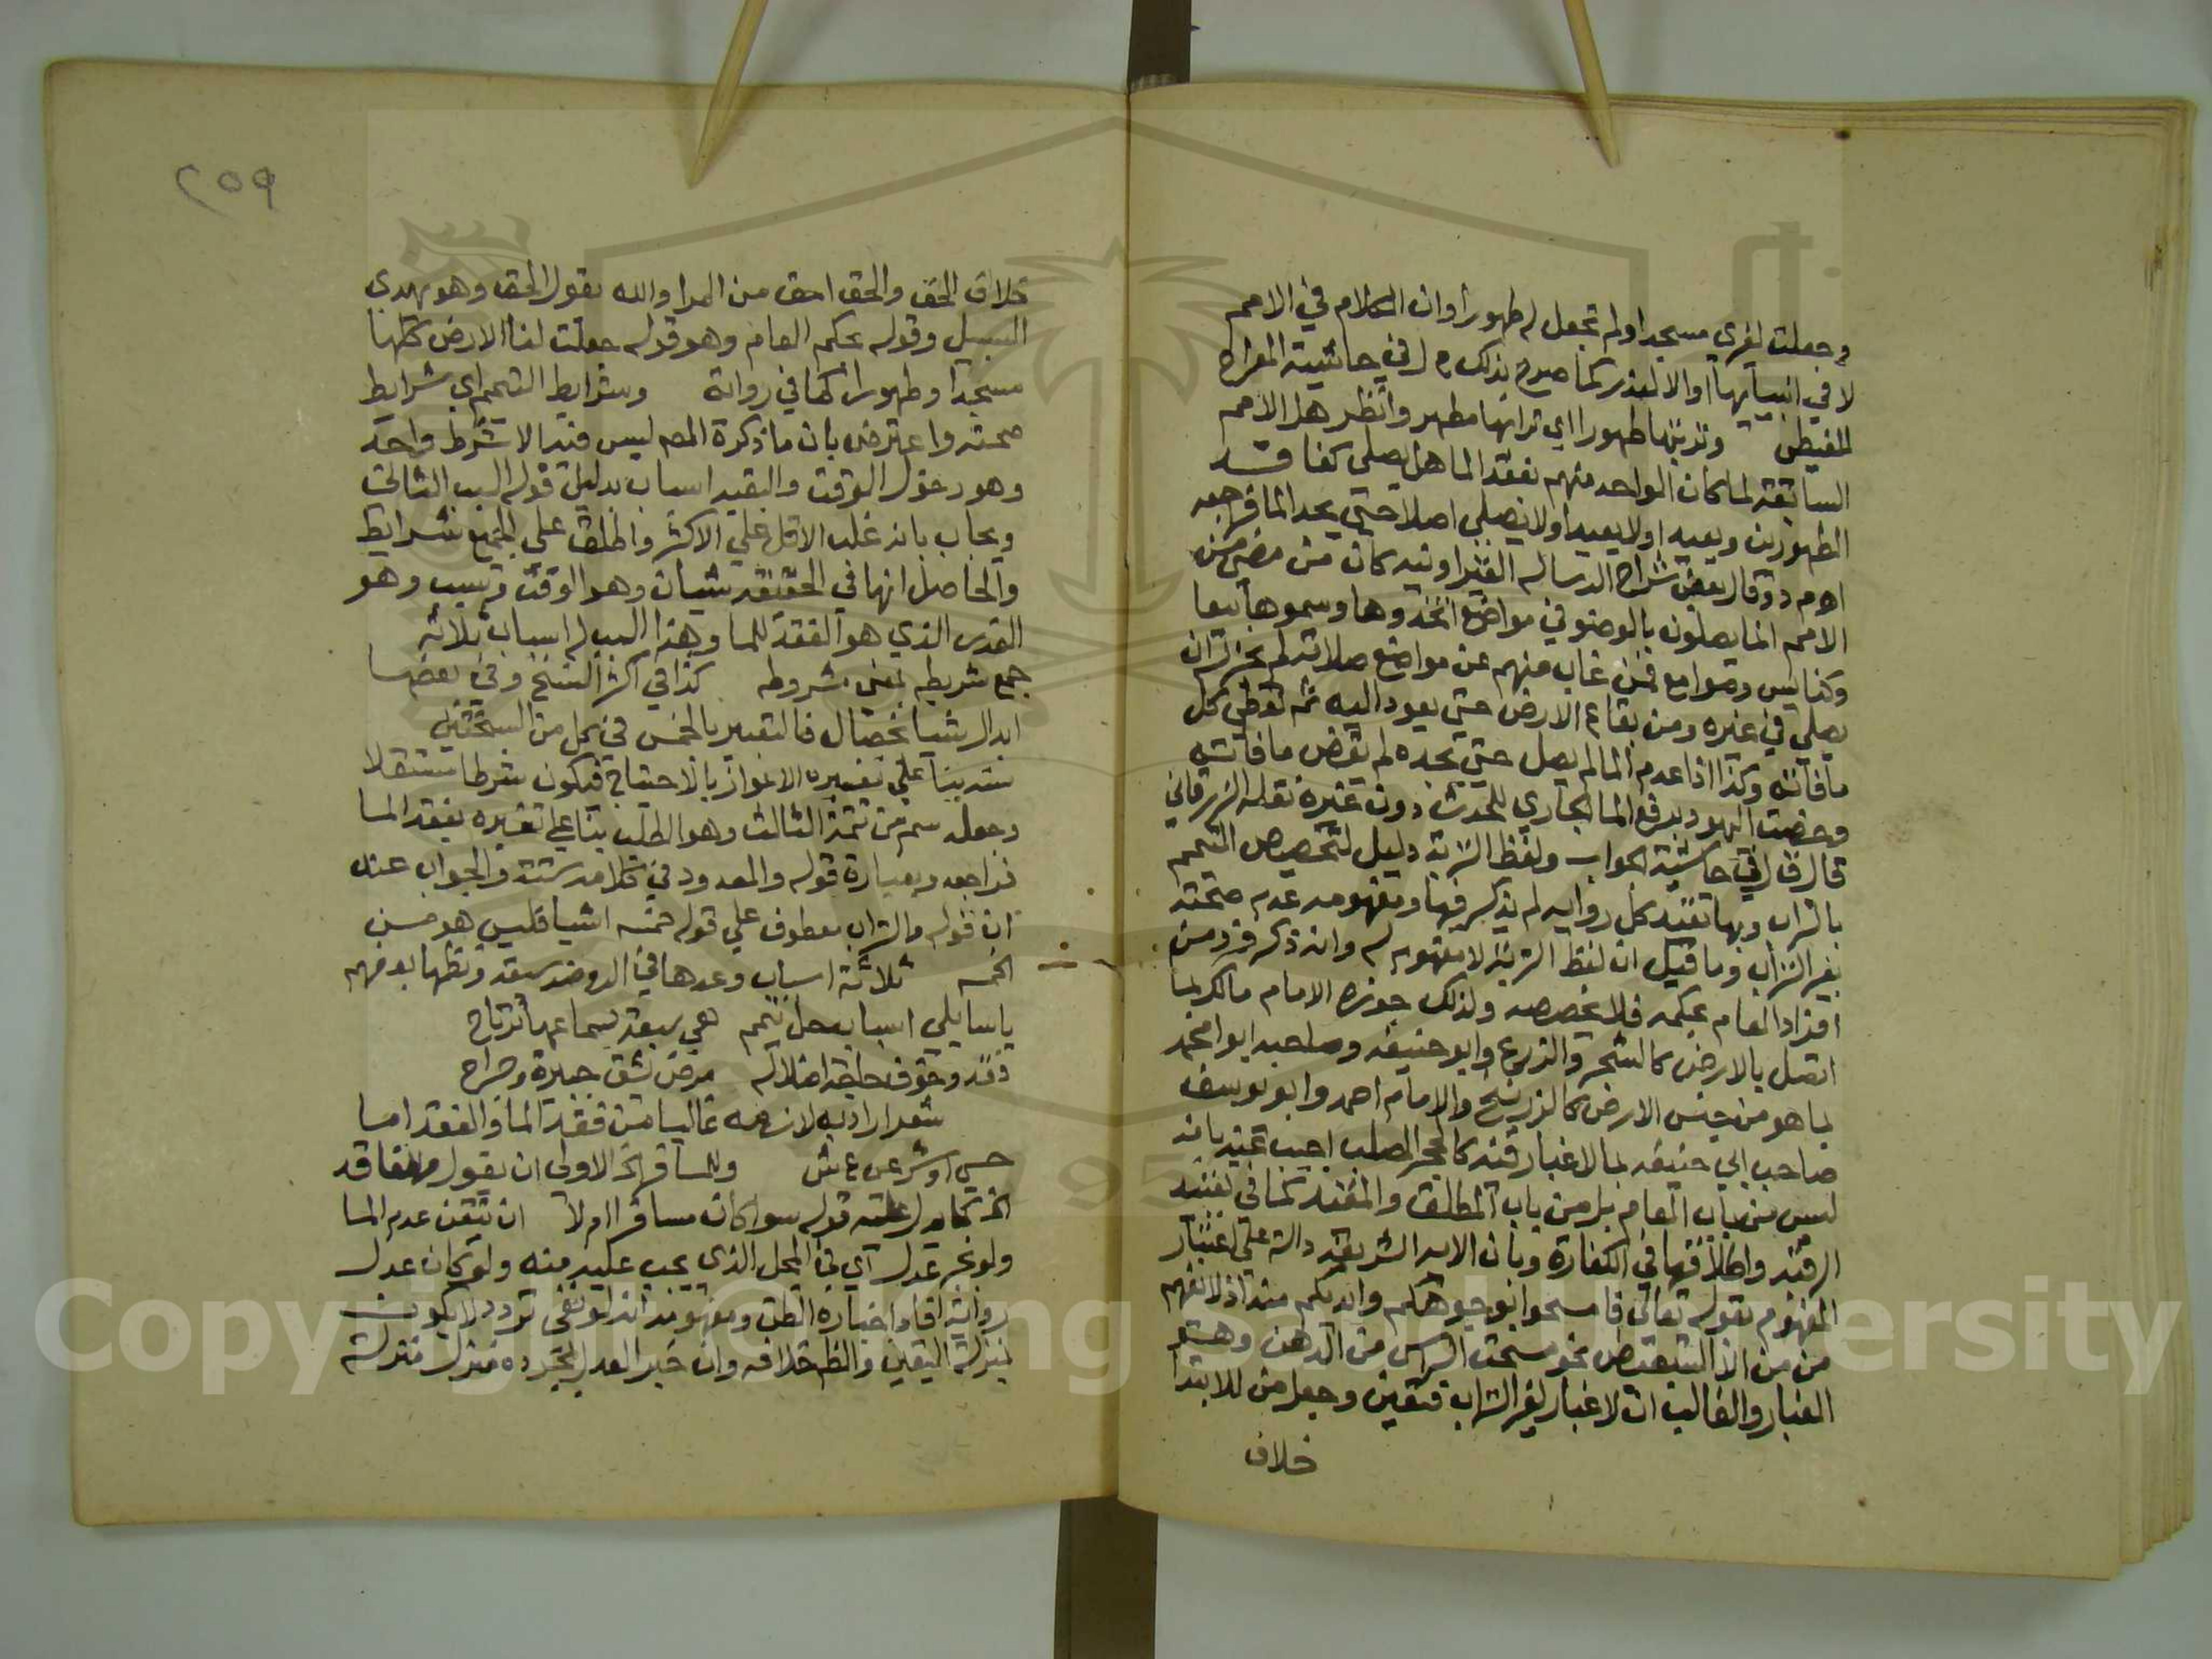 وجعلت لغيري مسجدا ولم تجعل له طهورا وان الكلام في الامم
لا في انبيائها او الا لعذر كما صرح بذلك م ر في حاشية المعراج
للغيطي وتربتها طهورا اي ترابها مطهر وانظر هل الامم
السابقة لما كان الواحد منهم يفقد الما هل يصلي كفاقد
الطهورين ويعيد او لا يعيد او لا يصلي اصلا حتى يجد الما فراجعه
اهـ م د وقال بعض شراح الرسالة القيراونيه كان من مضى من
الامم انما يصلون بالوضو في مواضع اتخذوها وسموها بيعا
وكنايس وصوامع فمن غاب منهم عن مواضع صلاته لم يجز له ان
يصلي في غيره ومن بقاع الارض حتى يعود اليه ثم يقضي كل
ما فاته وكذا اذا عدم الما لم يصل حتى يجده ثم يقضي ما فاته
وخصت اليهود برفع الما الجاري للحدث دون غيره نقله الزرقاني
قال ق ل في حاشية ولفظ التربة دليل لتخصيص التيمم
بالتراب وبها تقيد كل رواية لم يذكر فيها ومفهومه عدم صحته
بغير التراب وما قيل ان لفظ التربة لا مفهوم له وان ذكر فرد من
افراد العام بحكمه فلا يخصصه ولذلك جوزه الامام مالك بما
اتصل بالارض كالشجر والزرع وابو حنيفه وصاحبه ابو محمد
بما هو من جنس الارض كالزرنيخ والامام احمد وابو يوسف
صاحب ابي حنيفه بما لا غبار فيه كالحجر الصلب اجيب عنه بانه
ليس من باب العام بل من باب المطلق والمقيد كما في تقييد
الرقبة واطلاقها في الكفارة وبان الاية الشريفه دالة على اعتبار
المفهوم بقوله تعالى فامسحوا بوجوهكم وايديكم منه اذ لا يفهم
من من الا التبعيض نحو مسحت الراس من الدهن وهو
الغبار والغالب ان لا غبار لغير التراب فتعين وجعل من للابتدا
خلاف
٢٥٩
خلاف الحق والحق احق من المرا والله يقول الحق وهو يهدي
السبيل وقوله بحكم العام وهو قوله جعلت لنا الارض كلها
مسجدا وطهورا كما في رواية وشرايط التيمم اي شرايط
صحته واعترض بان ما ذكره المص ليس فيه الا شرط واحد
وهو دخول الوقت والبقية اسباب بدليل قوله السبب الثالث
ويجاب بانه غلب الاقل على الاكثر واطلق على الجميع شرايط
والحاصل انها في الحقيقه شيان وهو الوقت وسبب وهو
العذر الذي هو الفقد للما وهذا السبب له اسباب ثلاثه
جمع شريطه بمعنى مشروطه كذا في اكثر النسخ وفي بعضها
ابدال شيا بخصال فالتعبير بالخمس في كل من النسختين
سديد بنا على تفسيره الاعواز بالاحتياج فيكون شرطا مستقلا
وجعله سم من تتمة الثالث وهو الطلب بنا على تفسيره بفقد الما
فراجعه وبعبارة قوله والمعدود في كلامه ستة والجواب عنه
ان قوله والتراب معطوف على قوله خمسه اشيا فليس هو من
الخمسه ثلاثة اسباب وعدها في الروضه سبعه ونظمها بعضهم
يا سايلي اسباب حل تيمم هي سبعة بسماعها ترتاح
فقد وخوف حاجة اضلاله مرض يشق جبيرة وجراح
سفر اراد به لازمه غالبا من فقد الما والفقد اما
حسي او شرعي ع ش وللمسافر الخ الاولى ان يقول وللفاقد
الخ كما يدل عليه قوله سوا كان مسافرا ام لا ان تيقن عدم الما
ولو بخبر عدل اي في المحل الذي يجب طلبه منه ولو كان عدل
رواية افاد اخباره الظن ومفهومه انه لو بقي تردد لا يكون
بمنزلة اليقين والظ خلافه وان خبر العدل بمجرده منزل منزلة